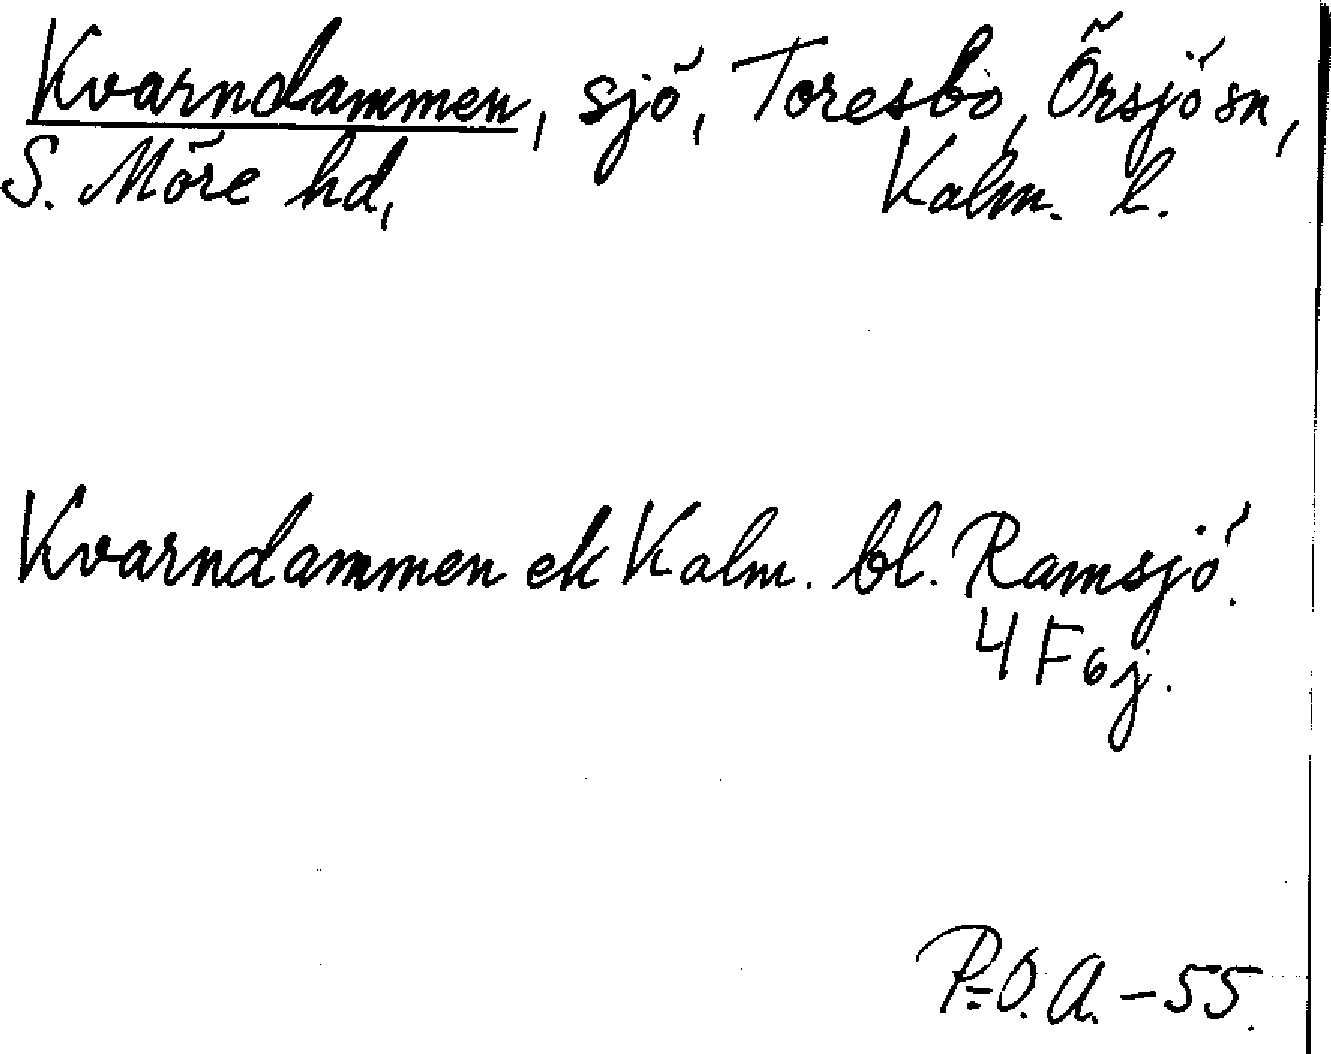 Kvarndammen, sjö, Toresbo, Örsjö sn,
S. Möre hd, Kalm. l.
Kvarndammen ek Kalm. bl. Ramsjö.
4 F 6 j.
P-O. A. - 55.